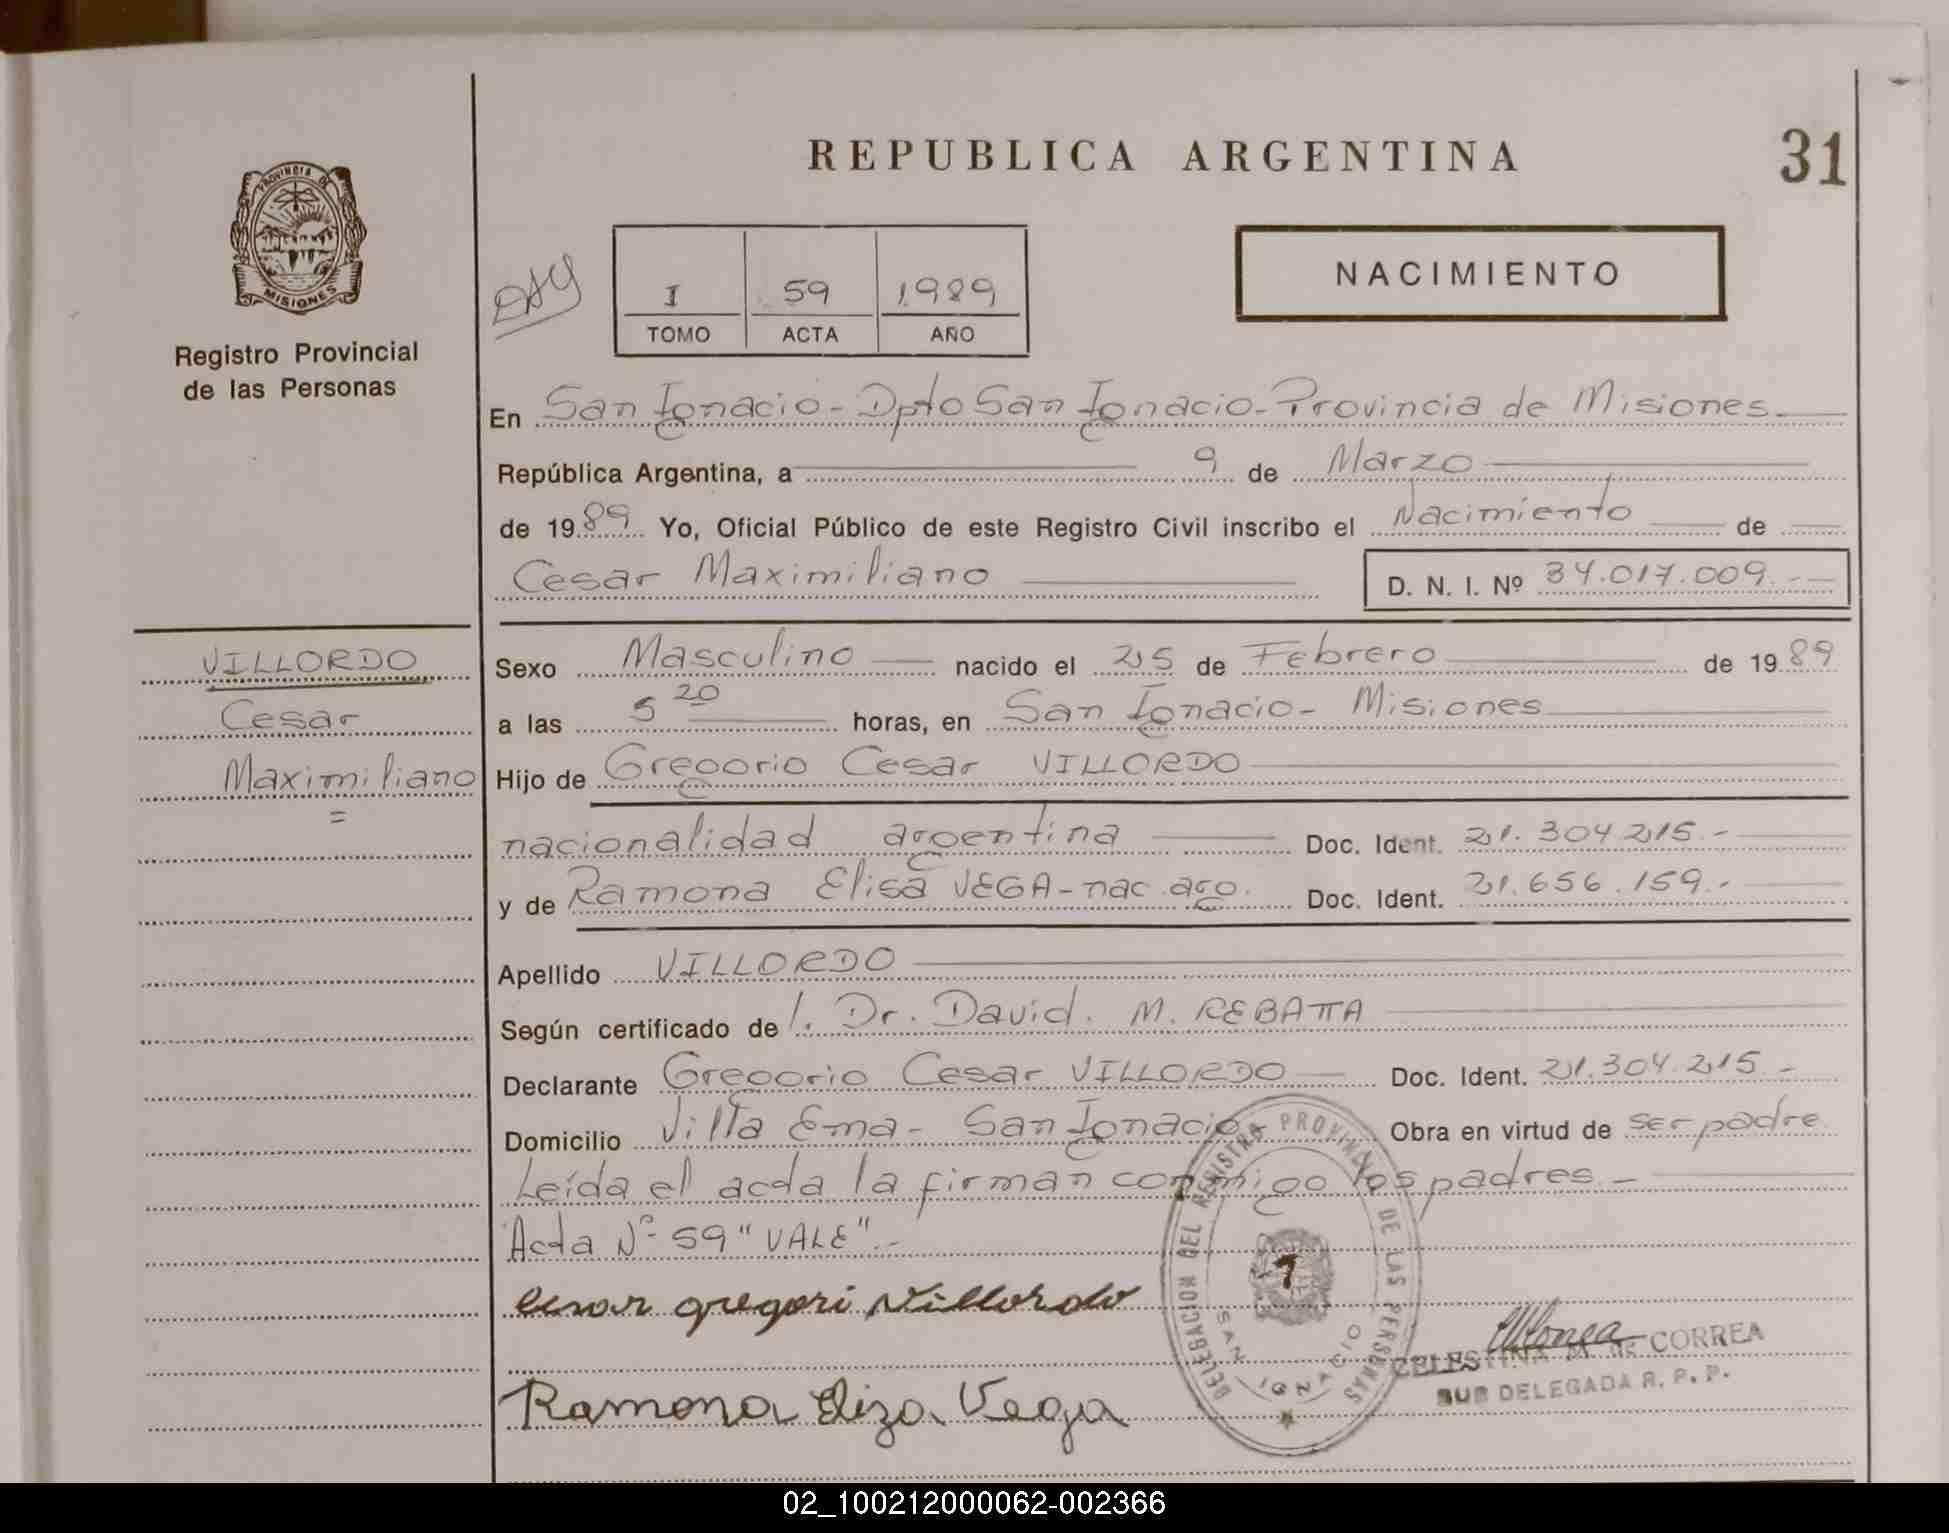 REPUBLICA ARGENTINA
31
PROVINCIA DE
MISIONES
Registro Provincial
de las Personas
I 59 1989
TOMO ACTA AÑO
NACIMIENTO
En San Ignacio - Dpto San Ignacio - Provincia de Misiones
República Argentina, a 9 de Marzo
de 1989 Yo, Oficial Público de este Registro Civil inscribo el Nacimiento de
Cesar Maximiliano D. N. I. Nº 34.017.009.-
VILLORDO
Cesar
Maximiliano
=
Sexo Masculino nacido el 25 de Febrero de 1989
a las 5 20 horas, en San Ignacio - Misiones
Hijo de Gregorio Cesar VILLORDO
nacionalidad argentina Doc. Ident. 21.304.215.-
y de Ramona Elisa VEGA - nac. arg. Doc. Ident. 21.656.159.-
Apellido VILLORDO
Según certificado de l. Dr. David. M. REBATTA
Declarante Gregorio Cesar VILLORDO Doc. Ident. 21.304.215.-
Domicilio Villa Ema - San Ignacio Obra en virtud de ser padre
Leída el acta la firman conmigo los padres.-
Acta Nº 59 "VALE".-
Cesar gregori Villordo
Ramona Eliza Vega
DELEGACION DEL REGISTRO PROVINCIAL DE LAS PERSONAS
SAN IGNACIO
CELESTINA M. de CORREA
SUB DELEGADA R. P. P.
02_100212000062-002366